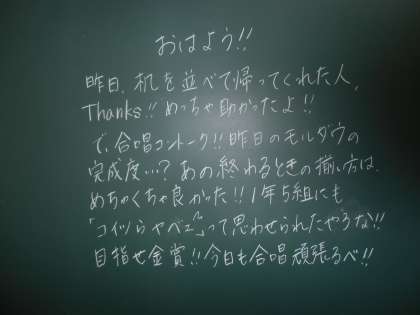 おはよう!!
昨日、机を並べて帰ってくれた人、
Thanks!! めっちゃ助かったよ!!
で、合唱コントーク!! 昨日のモルダウの
完成度…? あの終わるときの揃い方は、
めちゃくちゃ良かった!! 1年5組にも
「コイツらやべェ」って思わせられたやろな!!
目指せ金賞!! 今日も合唱頑張るべ!!